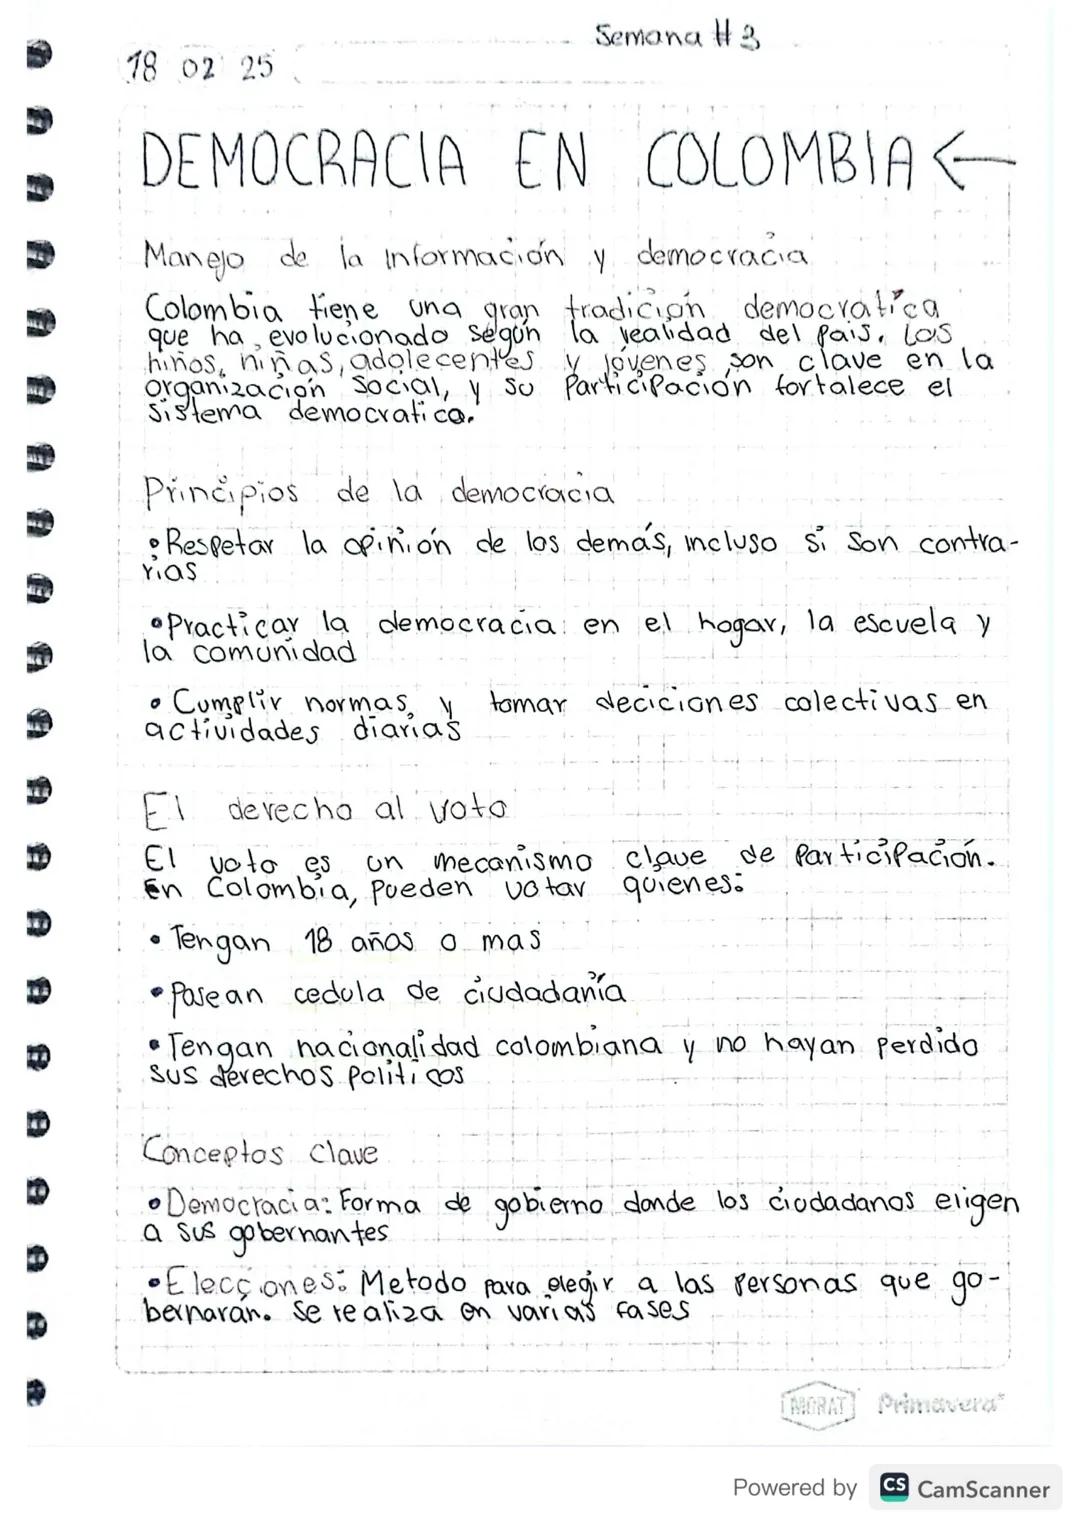 Semana #3
18 02 25
DEMOCRACIA EN COLOMBIA ←
Manejo de la información y democracia
Colombia tiene una gran tradición democratica
que ha evolucionado según la realidad del país. Los
niños, niñas, adolecentes y jóvenes son clave en la
organización social, y su Participación fortalece el
sistema democratico.
Principios de la democracia
• Respetar la opinión de los demás, incluso si son contra-
rias
• Practicar la democracia en el hogar, la escuela y
la comunidad
• Cumplir normas y tomar deciciones colectivas en
actividades diarias
El derecho al voto
El voto es un mecanismo clave de Participación.
En Colombia, pueden votar quienes:
• Tengan 18 años o mas
• Posean cedula de ciudadanía
• Tengan nacionalidad colombiana y no hayan perdido
sus derechos politicos
Conceptos clave
• Democracia: Forma de gobierno donde los ciudadanos eligen
a sus gobernantes
• Elecciones: Metodo para elegir a las personas que go-
bernaran. Se realiza en varias fases
MORAT Primavera
Powered by CS CamScanner